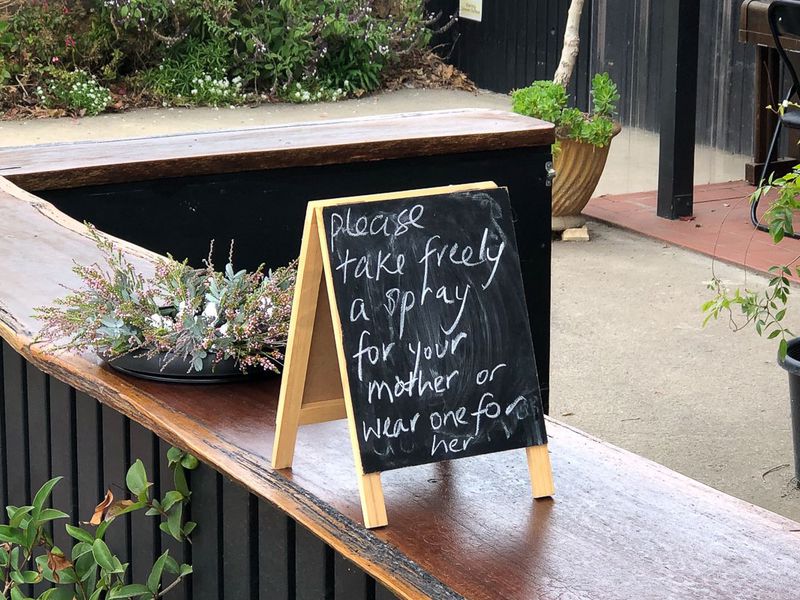 please
take freely
a spray
for your
mother or
wear one for
her